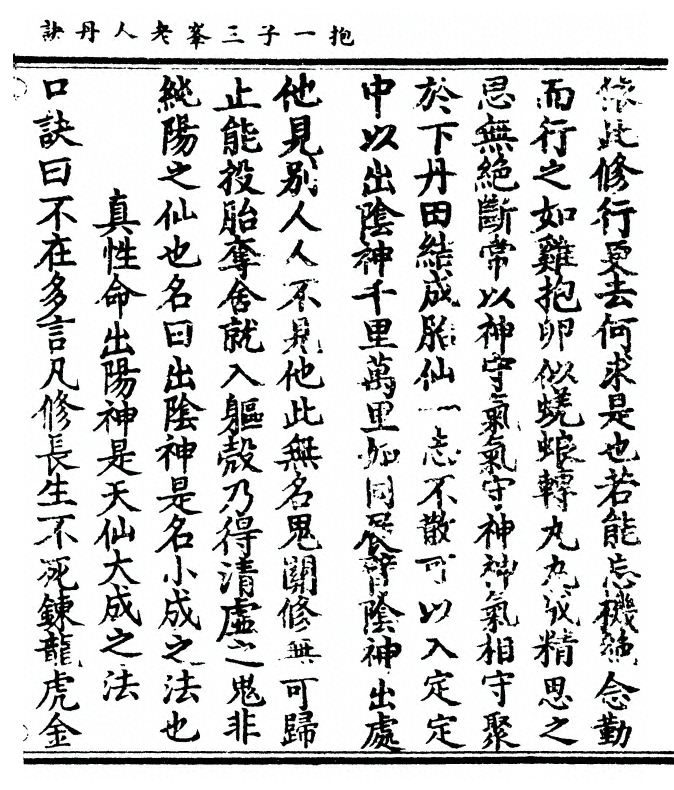 抱一子三峯老人丹訣
依此修行更去何求是也若能忘機絶念勤
而行之如雞抱卵似蜣蜋轉丸丸成精思之
思無絶斷常以神守氣氣守神神氣相守聚
於下丹田結成胎仙一志不散可以入定定
中以出陰神千里萬里如同 陰神出處
他見別人人不見他此無名鬼關修無可歸
止能投胎奪舍就入軀殼乃得清虛之鬼非
純陽之仙也名曰出陰神是名小成之法也
真性命出陽神是天仙大成之法
口訣曰不在多言凡修長生不死鍊龍虎金